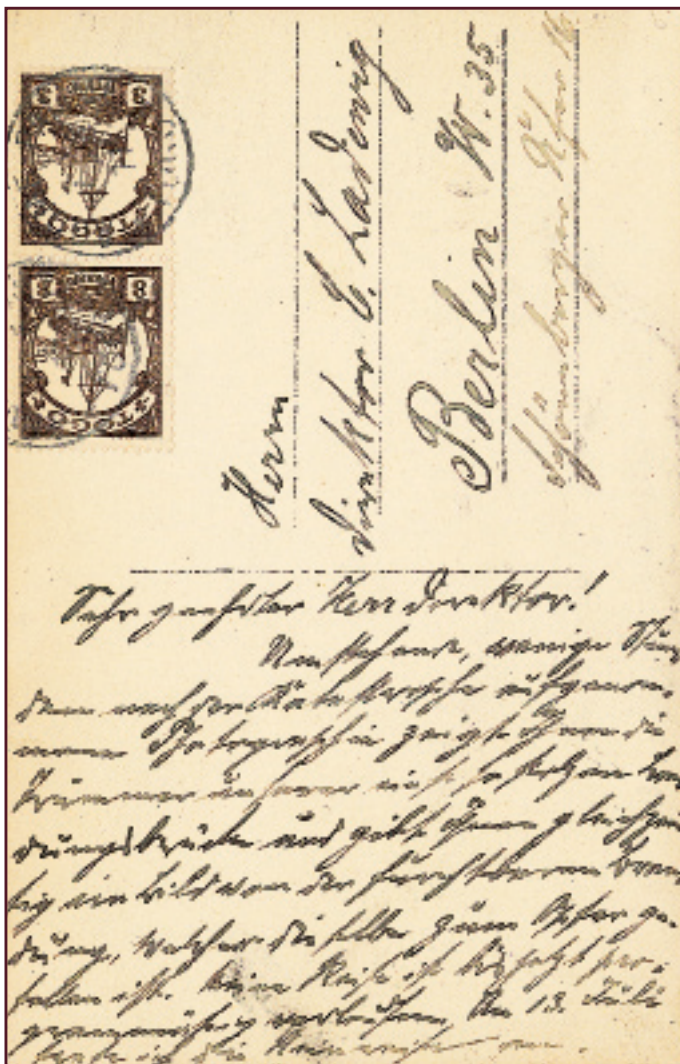 3 3
TOGO
3 3
TOGO
Herrn
Direktor C. Ladewig
Berlin W. 35
Schöneberger Ufer 16
Sehr geehrter Herr Direktor!
Umstehende, wenige Stun
den nach der Katastrophe aufgenom-
mene Photographie zeigt Ihnen die
Trümmer unserer einst so stolzen Lan
dungsbrücke und gibt Ihnen gleichzei
tig ein Bild von der furchtbaren Bran
dung, welcher dieselbe zum Opfer ge-
fallen ist. Meine Reise ist bis jetzt pro-
grammäßig verlaufen, Am 13. Juli
trete ich die Heimreise an.